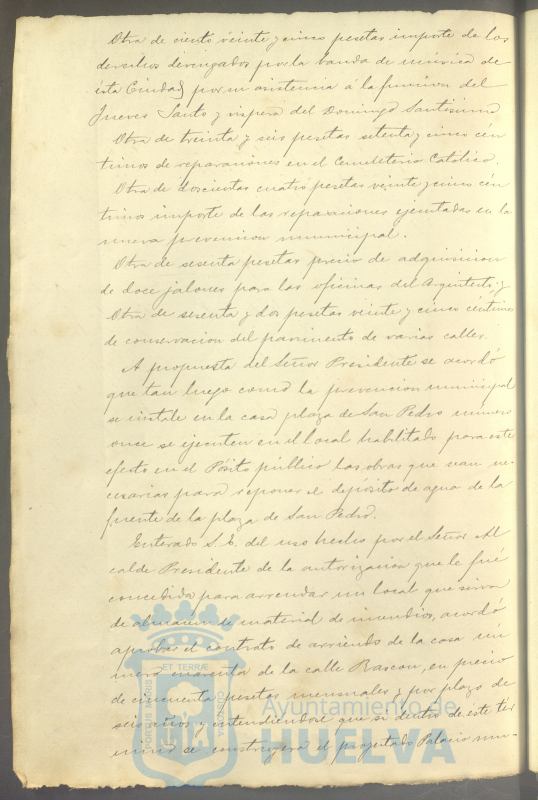 Otra de ciento veinte y cinco pesetas importe de los
derechos devengados por la banda de música de
ésta Ciudad por su asistencia á la funcion del
Jueves Santo y vispera del Domingo Santisimo
Otra de treinta y seis pesetas setenta y cinco cén
timos de reparaciones en el Cementerio Católico.
Otra de doscientas cuatro pesetas veinte y cinco cén
timos importe de las reparaciones ejecutadas en la
nueva prevencion municipal.
Otra de sesenta pesetas precio de adquisicion
de doce jalones para las oficinas del Arquitecto, y
Otra de sesenta y dos pesetas veinte y cinco céntimos
de conservacion del pavimento de varias calles.
A propuesta del Señor Presidente se acordó
que tan luego como la prevencion municipal
se instale en la casa plaza de San Pedro número
once se ejecuten en el local habilitado para este
efecto en el Pósito público las obras que sean ne-
cesarias para reponer el depósito de agua de la
fuente de la plaza de San Pedro.
Enterado S. E. del uso hecho por el Señor Al
calde Presidente de la autorizacion que le fué
concedida para arrendar un local que sirva
de almacen de material de incendios, acordó
aprobar el contrato de arriendo de la casa nú
mero cuarenta de la calle Rascon, en precio
de cincuenta pesetas mensuales y por plazo de
seis años y entendiendose que si dentro de este tér
mino se construyera el proyectado Palacio mu-
ET TERRÆ
PORTUS MARIS
CUSTODIA
Ayuntamiento de
HUELVA